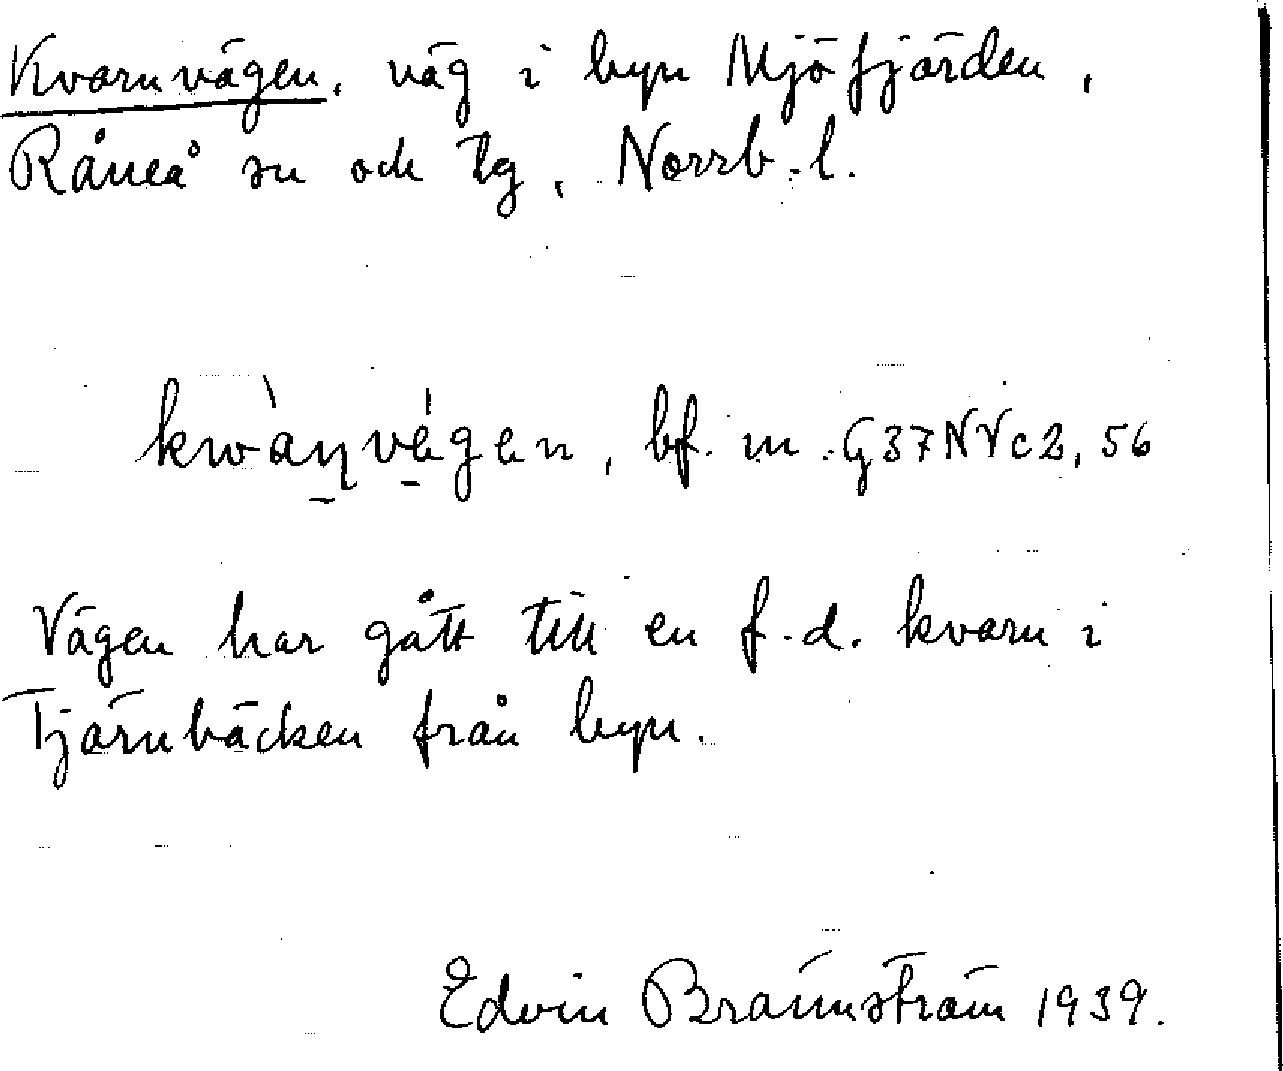 Kvarnvägen, väg i byn Mjöfjärden,
Råneå sn och tg, Norrb. l.
kwàɳvé̱gen, bf. m. G37NVc2, 56
Vägen har gått till en f.d. kvarn i
Tjärnbäcken från byn.
Edvin Brännström 1939.